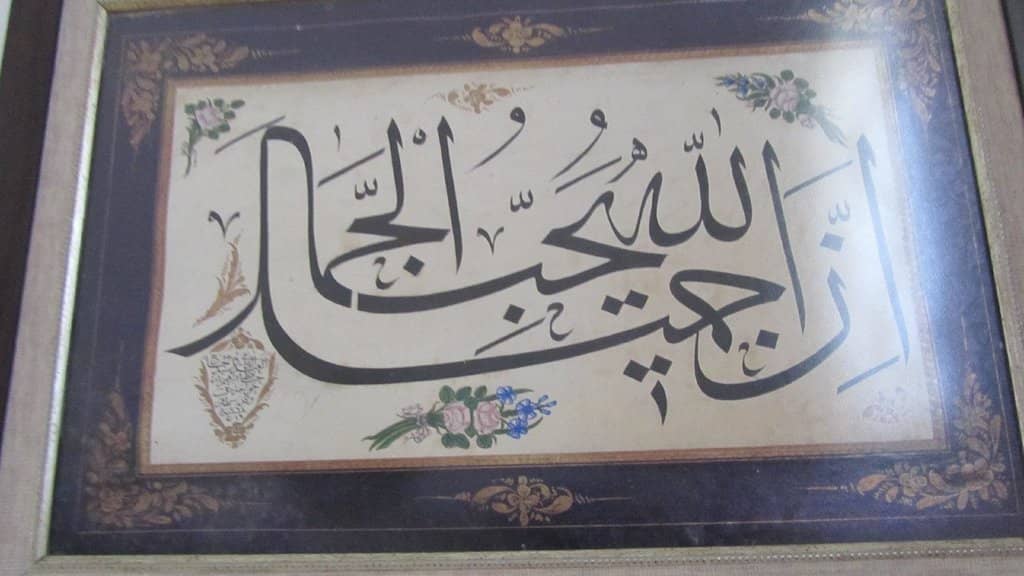 اِنَّ اللّٰهَ جَمِيلٌ يُحِبُّ الْجَمَالَ